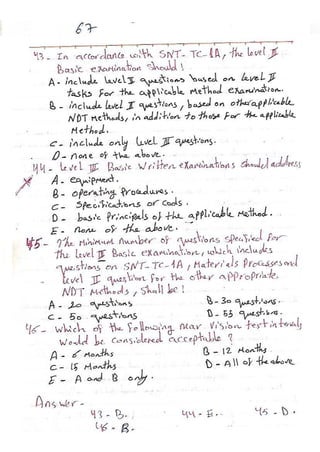 67
43- In accordance with SNT-TC-1A, the level III
Basic examination should!
A- include level I questions based on level II
tasks for the applicable method examination.
B- include level II questions, based on other applicable
NDT methods, in addition to those for the applicable
Method.
C- include only level III questions.
D- none of the above.
44- level III Basic Written examinations should address
A- Equipment.
B- operating Procedures.
C- Specifications or Cods.
D- basic Principals of the applicable Method.
E- none of the above.
45- The Minimum number of questions specified for
the level III Basic examination, which includes
questions on SNT-TC-1A, Materials Processes and
level II question for the other appropriate
NDT Methods, Shall be!
A- 20 questions B- 30 questions.
C- 50 questions D- 55 questions.
46- Which of the following near Vision test intervals
Would be considered acceptable?
A- 6 Months B- 12 Months.
C- 15 Months D- All of the above
E- A and B only.
Answer-
43-B. 44-E. 45-D.
46-B.